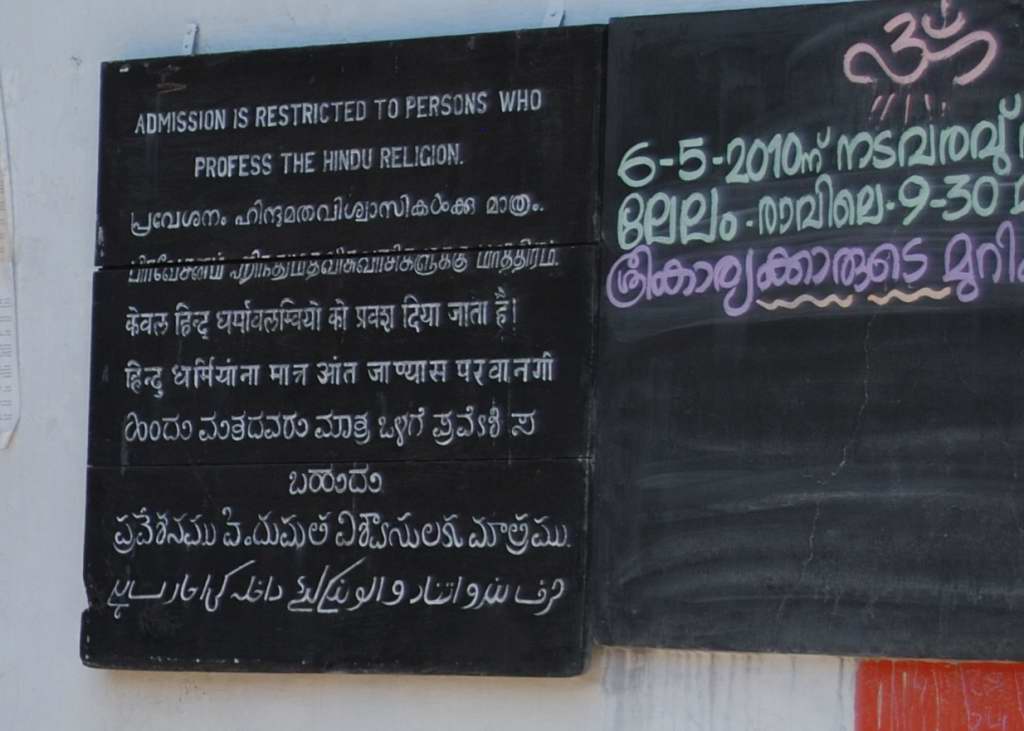 ADMISSION IS RESTRICTED TO PERSONS WHO
PROFESS THE HINDU RELIGION.
പ്രവേശനം ഹിന്ദുമതവിശ്വാസികൾക്കു മാത്രം.
பிரவேசனம் ஹிந்துமதவிசுவாசிகளுக்கு மாத்திரம்.
केवल हिन्दू धर्मावलम्बियो को प्रवश दिया जाता है।
हिन्दु धर्मियांना मात्र आंत जाण्यास परवानगी
ಹಿಂದೂ ಮತದವರು ಮಾತ್ರ ಒಳಗೆ ಪ್ರವೇಶಿ ಸ
ಬಹುದು
ప్రవేశనము హిందుమత విశ్వాసులకు మాత్రము.
صرف ہندو
ॐ
6-5-2010ന് നടവരവു്
ലേലം. രാവിലെ. 9-30
ശ്രീകാര്യക്കാരുടെ മുറി